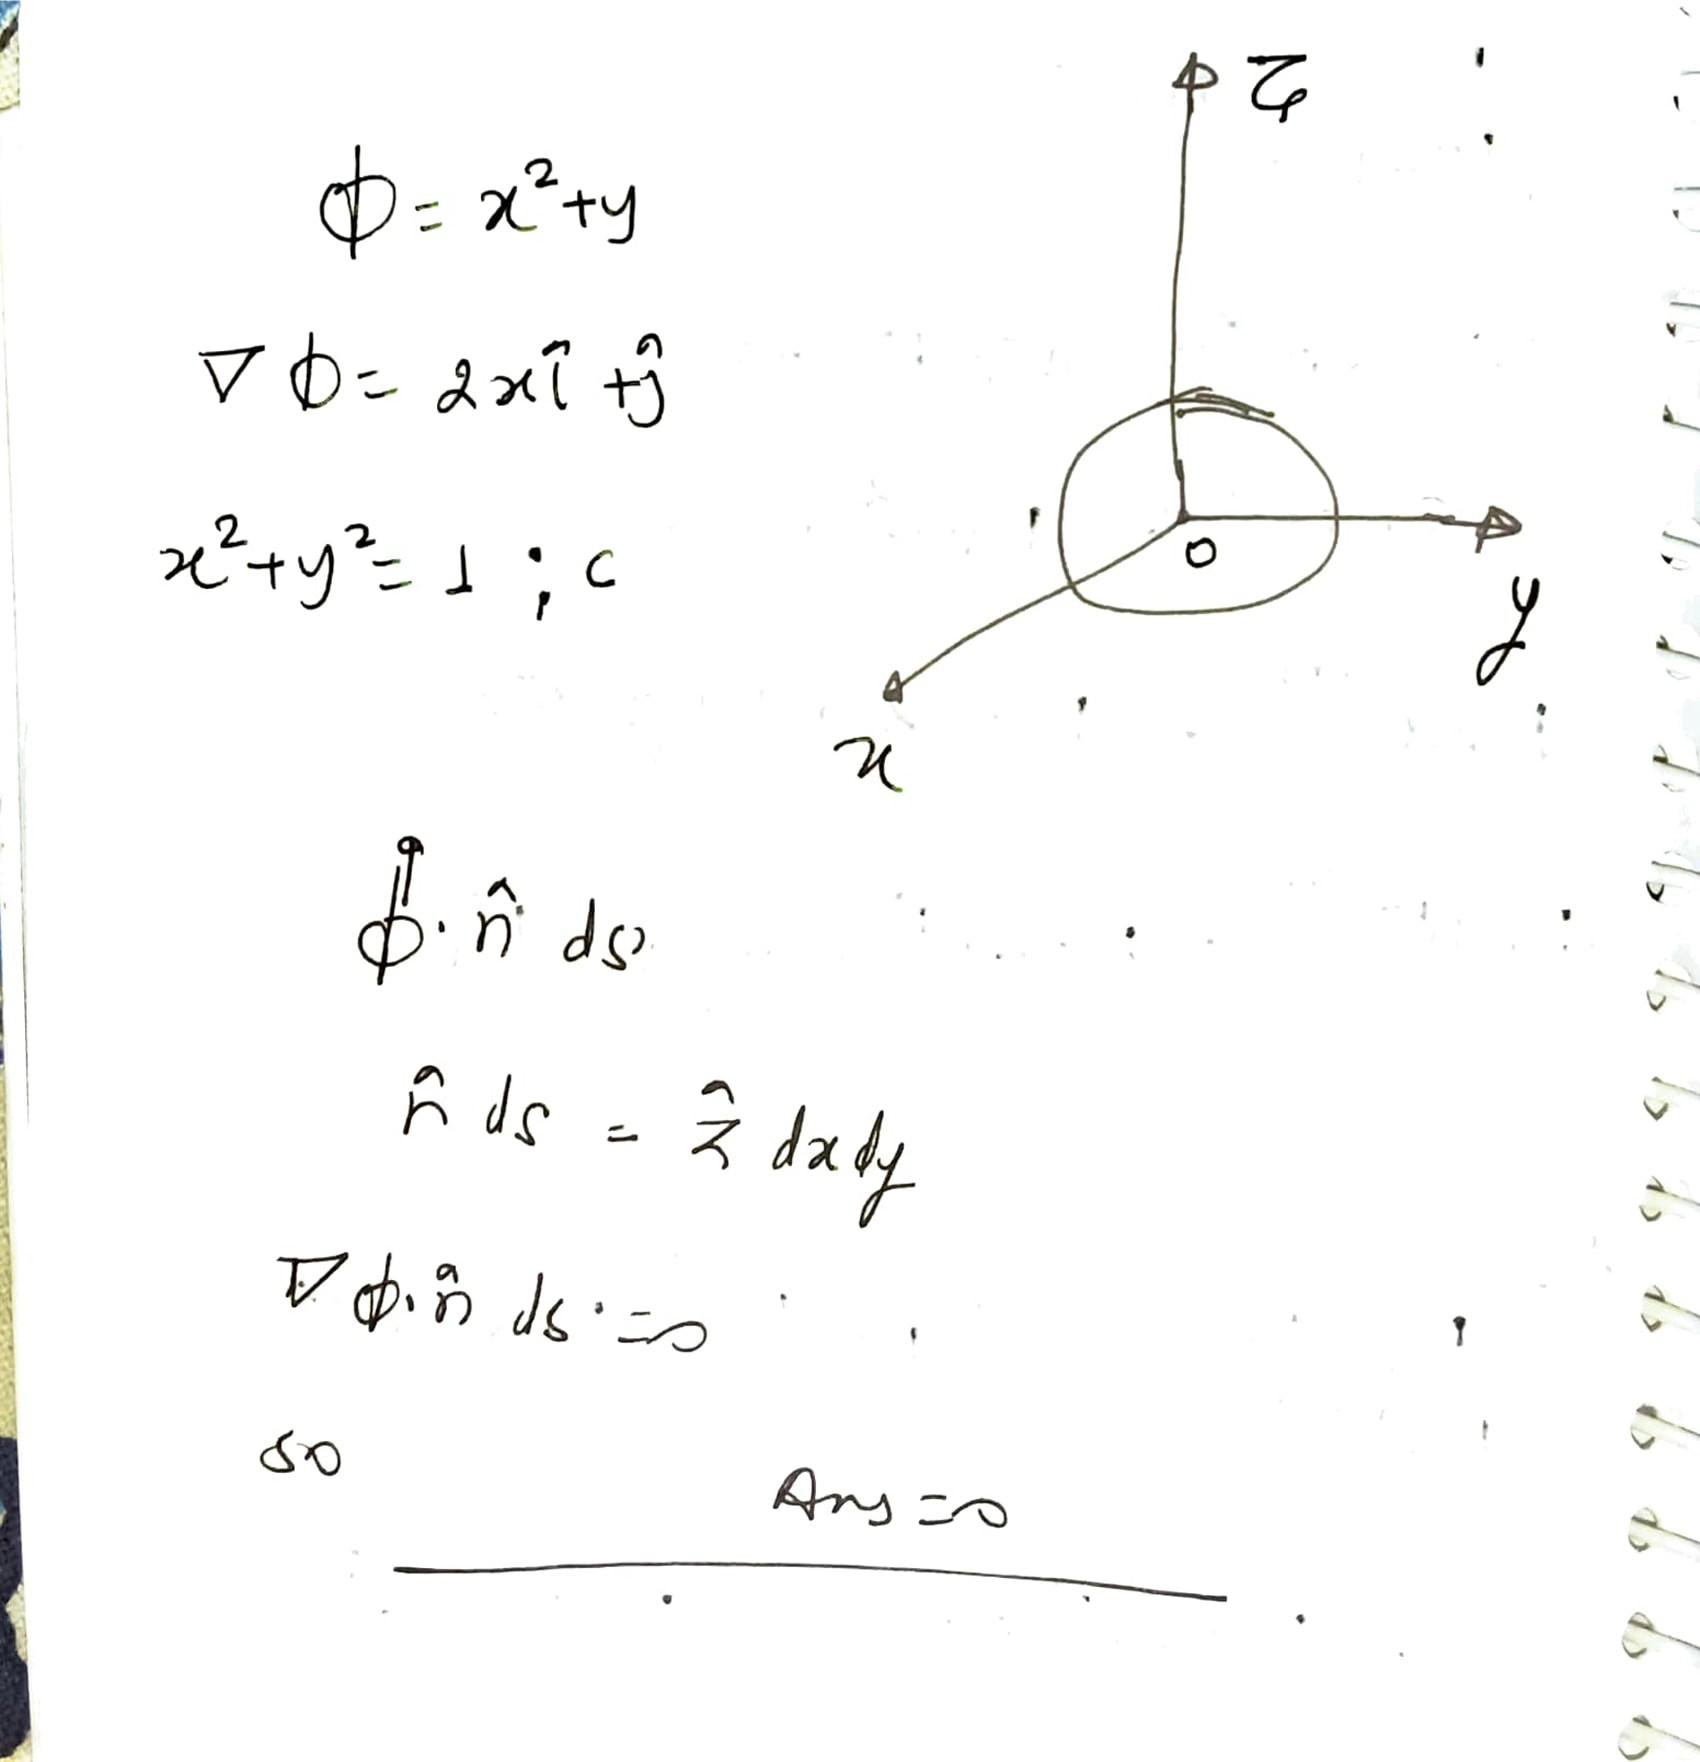 z
ϕ = x² + y
∇ϕ = 2xî + ĵ
x² + y² = 1 ; c
O
y
x
ϕ · n̂ ds
n̂ ds = ẑ dxdy
∇ϕ · n̂ ds = 0
so
Ans = 0